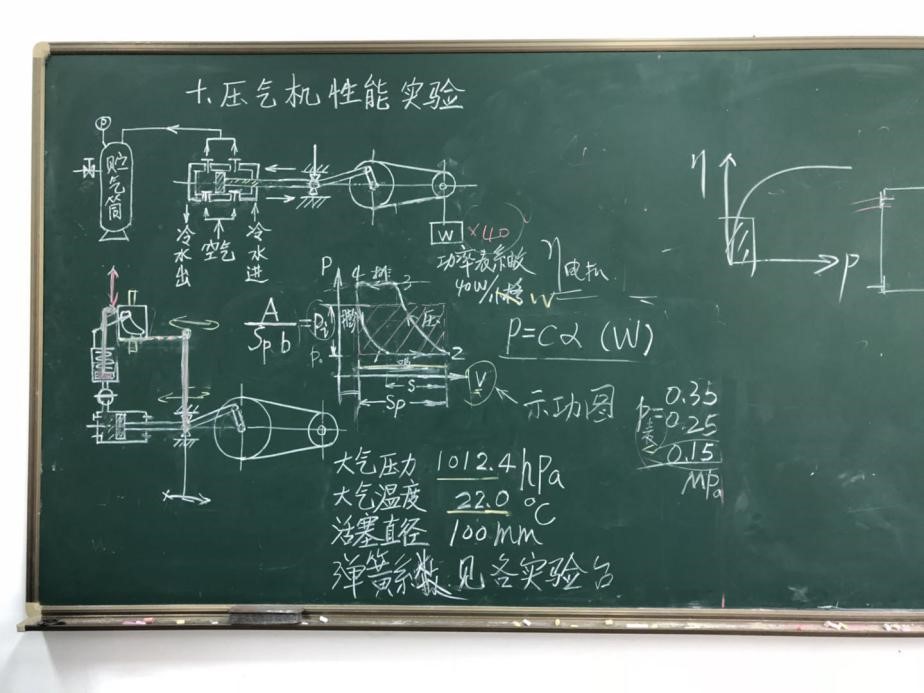 十、压气机性能实验
P
贮气筒
冷水出
空气
冷水进
W ×40
功率表系数
40W/小格
η电机
η
P
P
4 排 3
A
Sp b
= Pi
膨
压
P.
1
2
吸
S
Sp
V
示功图
P=Cα (W)
P表=
0.35
0.25
0.15
MPa
大气压力 1012.4 hPa
大气温度 22.0 °C
活塞直径 100mm
弹簧系数见各实验台